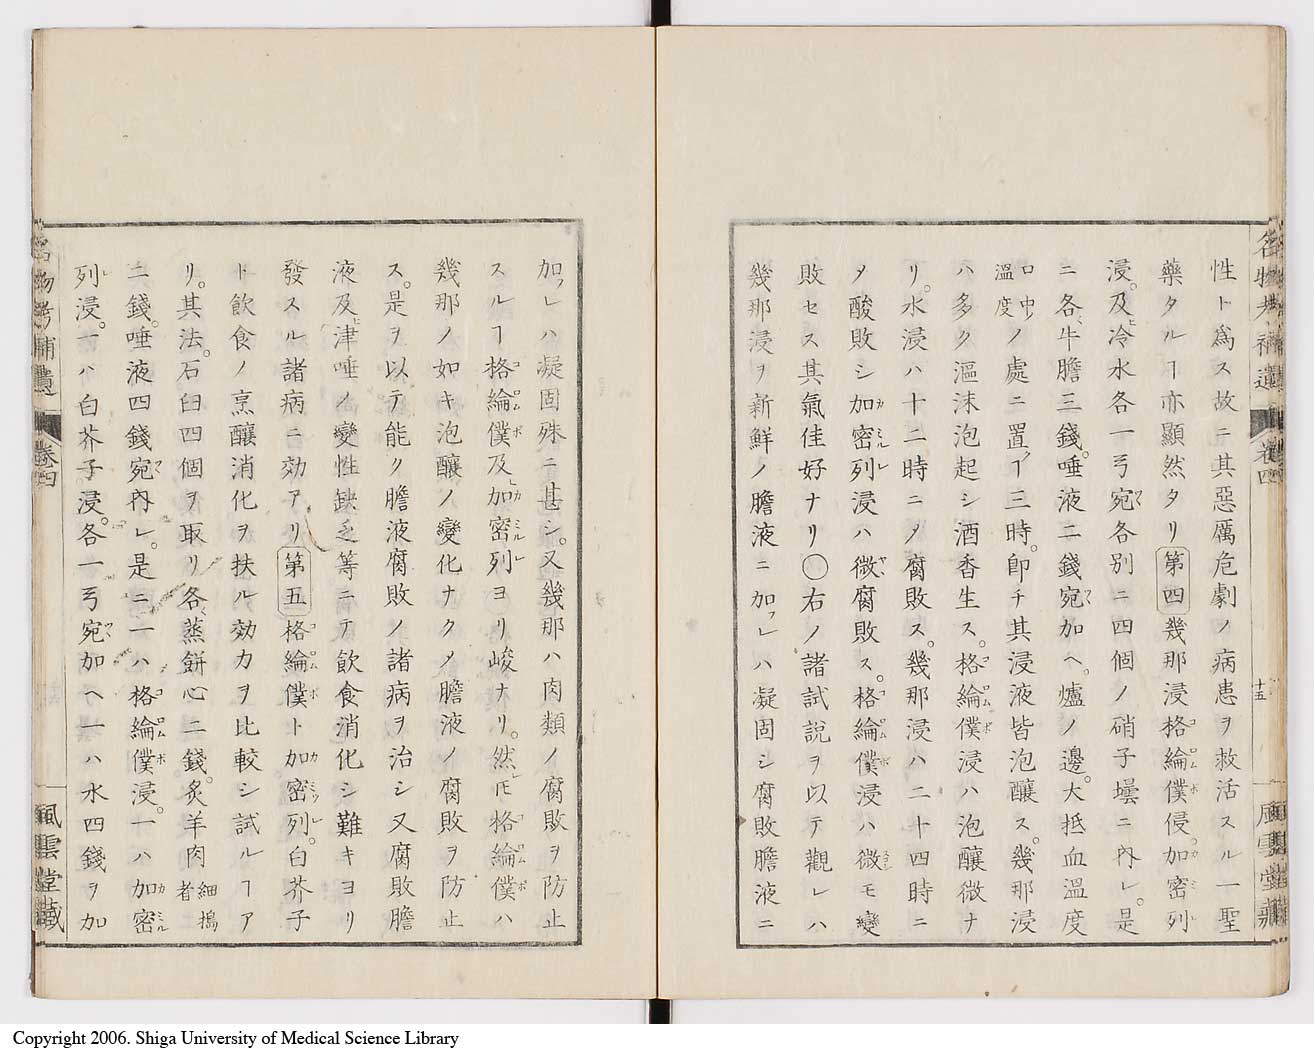 性ト爲ス故ニ其惡厲危劇ノ病患ヲ救活スル一聖
藥タルヿ亦顯然タリ第四幾那浸格綸僕侵。加密列
浸。及冷水各一弓宛各別ニ四個ノ硝子壜ニ內レ。是
ニ各牛膽三錢。唾液二錢宛加ヘ。爐ノ邊。大抵血溫度
ロ中ノ溫度ノ處ニ置ヿ三時。卽チ其浸液皆泡釀ス。幾那浸
ハ多ク漚沫泡起シ酒香生ス。格綸僕浸ハ泡釀微ナ
リ。水浸ハ十二時ニノ腐敗ス。幾那浸ハ二十四時ニ
メ酸敗シ加密列浸ハ微腐敗ス。格綸僕浸ハ微モ變
敗セス其氣佳好ナリ〇右ノ諸試説ヲ以テ觀レハ
幾那浸ヲ新鮮ノ膽液ニ加フレハ凝固シ腐敗膽液ニ
加フレハ凝固殊ニ甚シ。又幾那ハ肉類ノ腐敗ヲ防止
スルヿ格綸僕及加密列ヨリ峻ナリ。然レ𪜈格綸僕ハ
幾那ノ如キ泡釀ノ變化ナクメ膽液ノ腐敗ヲ防止
ス。是ヲ以テ能ク膽液腐敗ノ諸病ヲ治シ又腐敗膽
液及津唾ノ變性缺乏等ニテ飲食消化シ難キヨリ
發スル諸病ニ効アリ第五格綸僕ト加密列。白芥子
ト飲食ノ烹釀消化ヲ扶ル効力ヲ比較シ試ルヿア
リ。其法。石臼四個ヲ取リ各蒸餅心二錢。炙羊肉細搗者
二錢。唾液四錢宛內レ。是ニ一ハ格綸僕浸。一ハ加密
列浸。一ハ白芥子浸。各一弓宛加ヘ一ハ水四錢ヲ加
名物考補遺 卷四 十五 風雲堂藏
名物考補遺 卷四 風雲堂藏
Copyright 2006. Shiga University of Medical Science Library